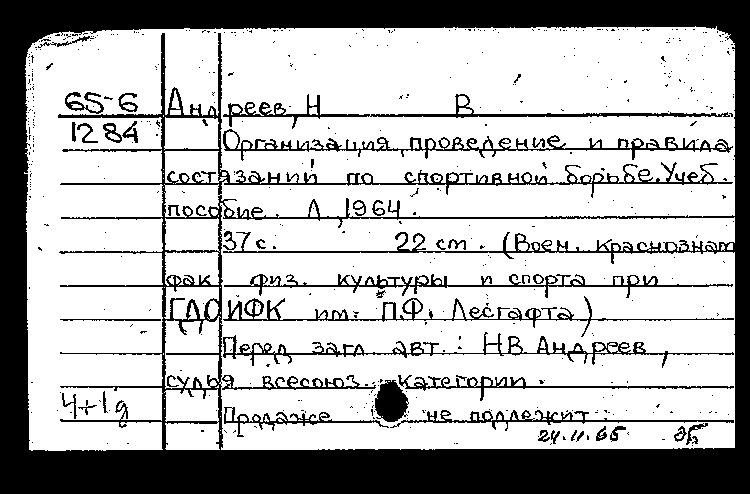 65-6 Андреев, Н В
1284
Организация, проведение и правила
состязаний по спортивной борьбе. Учеб.
пособие. Л, 1964.
37 с. 22 см. (Воен. краснознам
фак физ. культуры и спорта при
ГДОИФК им. П.Ф. Лесгафта)
Перед загл авт.: НВ Андреев,
судья всесоюз. категории.
4+1 д Продаже не подлежит.
24.11.65